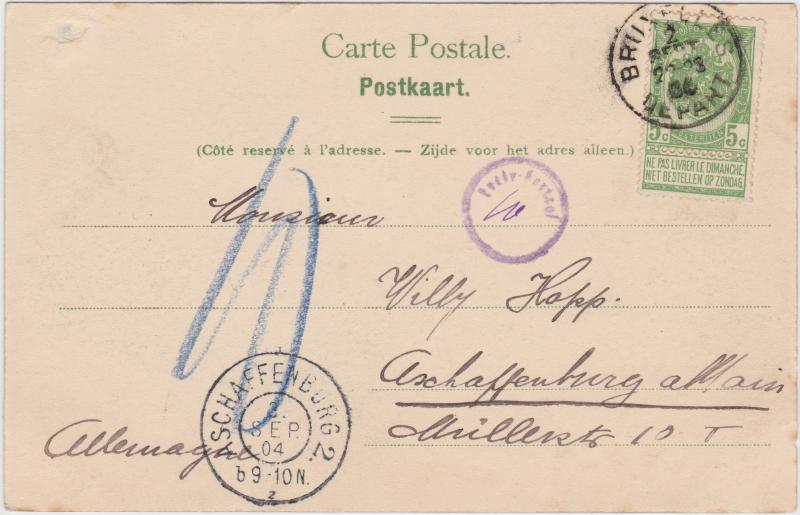 Carte Postale.
Postkaart.
(Côté reservé à l'adresse. — Zijde voor het adres alleen.)
BRUXELLES
2
SEPT
DEPART
5c 5c
NE PAS LIVRER LE DIMANCHE
NIET BESTELLEN OP ZONDAG
Monsieur
Willy Hopp.
Aschaffenburg a Main
Müllerstr 10 I
Allemagne
ASCHAFFENBURG 2.
SEP.
04
9-10N.
2